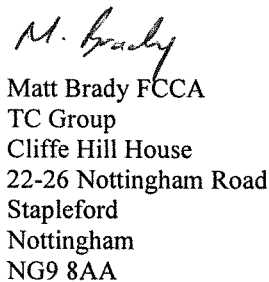 M. Brady
Matt Brady FCCA
TC Group
Cliffe Hill House
22-26 Nottingham Road
Stapleford
Nottingham
NG9 8AA